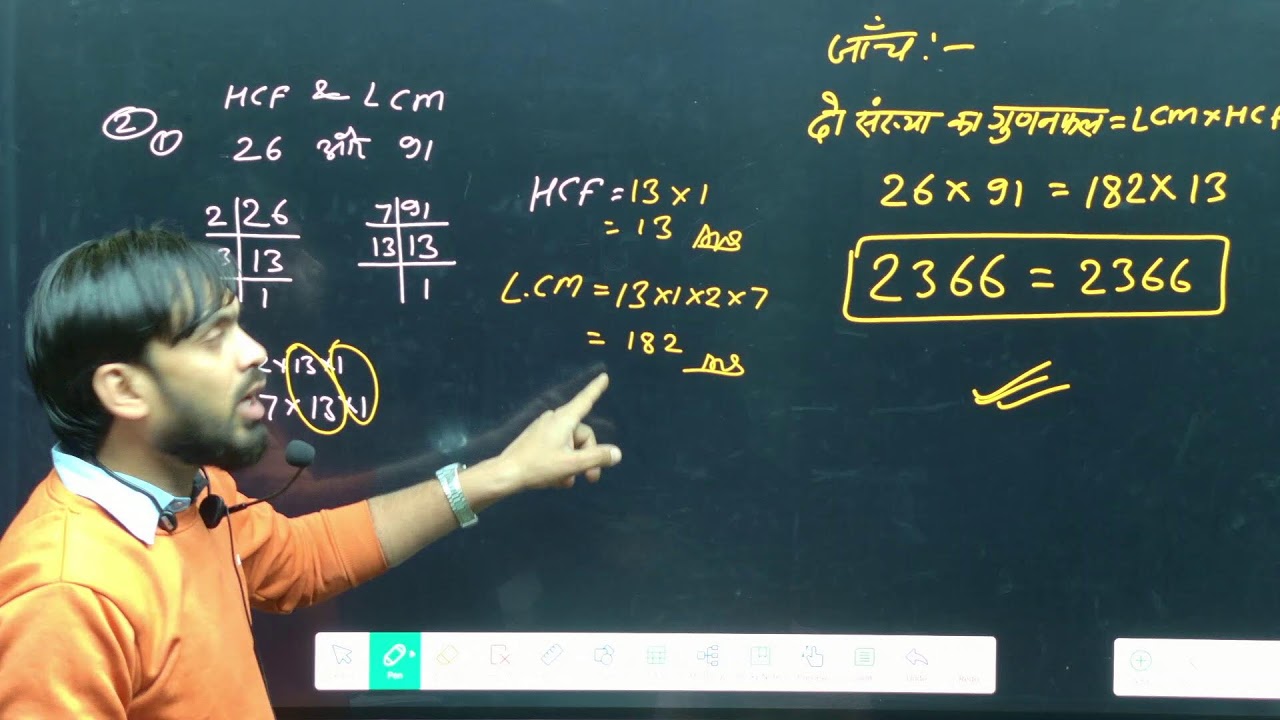 HCF & LCM
② ① 26 और 91
2|26
13
1
7|91
13|13
1
2×13×1
7×13×1
HCF = 13×1
= 13 Ans
L.CM = 13×1×2×7
= 182 Ans
जाँच :-
दो संख्या का गुणनफल = LCM×HCF
26 × 91 = 182 × 13
2366 = 2366
Pen